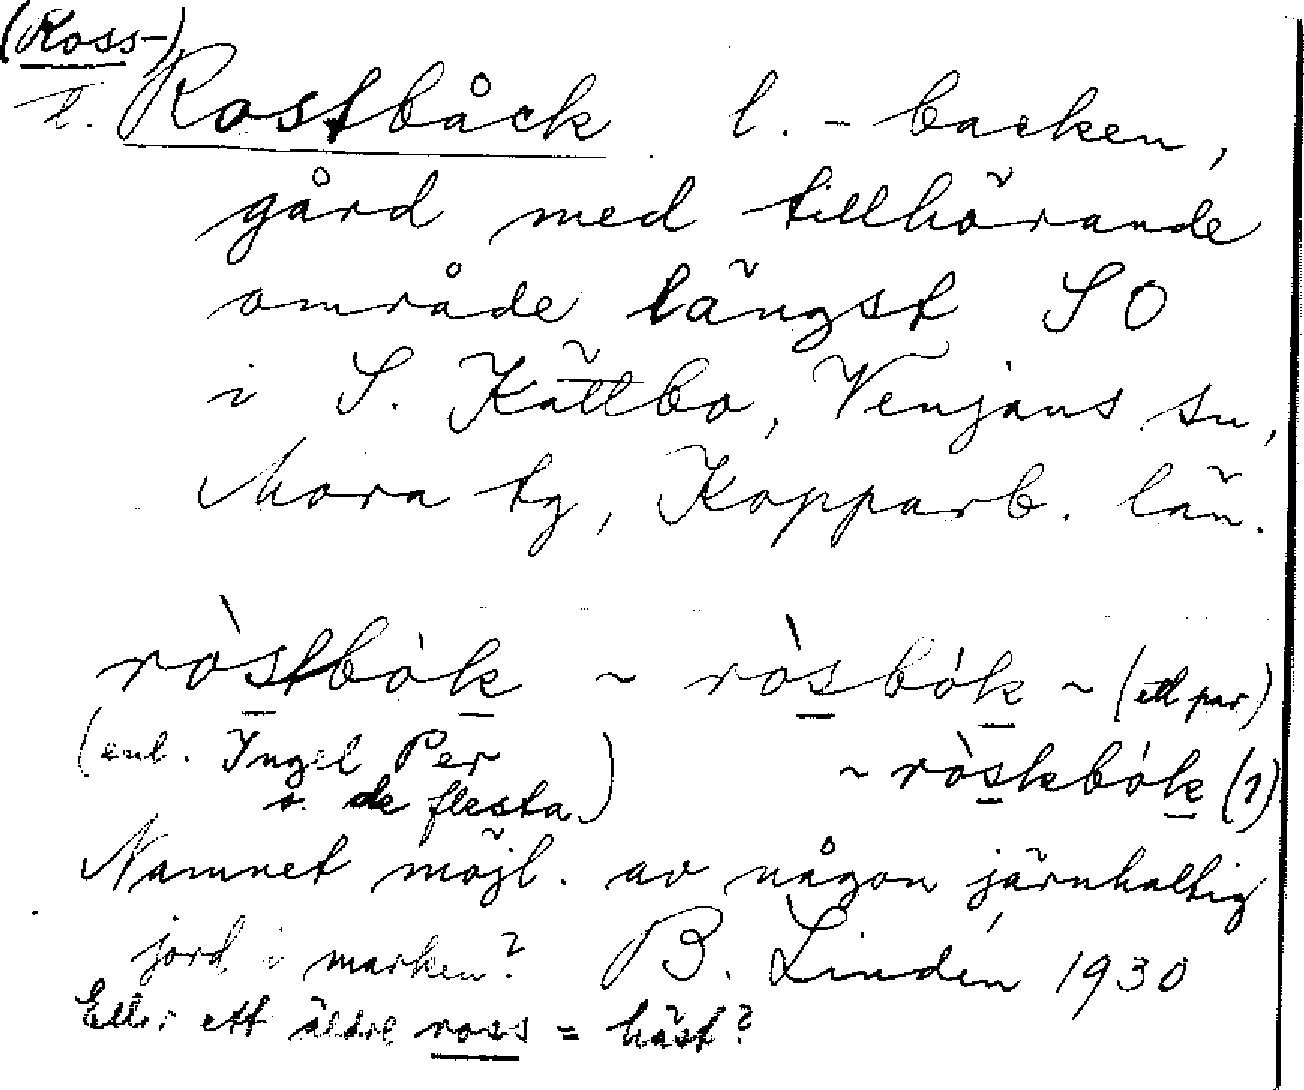 (Ross-)
l. Rostbåck l. -backen,
gård med tillhörande
område längst SO
i S. Kättbo, Venjans sn,
Mora tg, Kopparb. län.
ròstbòk ~ ròsbók ~ (ett par)
(enl. Ingel Per ~ ròskbók (?)
o. de flesta)
Namnet möjl. av någon järnhaltig
jord i marken? B. Lindén, 1930
Eller ett äldre ross = häst?